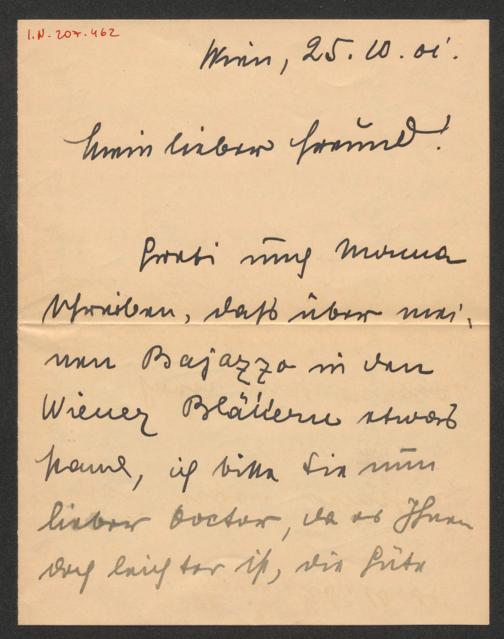 I.N. 207.462
Wien, 25.10.01.
Mein lieber Freund!
und Mama
schreiben, daß über mei-
nen Bajazzo in den
Wiener Blättern etwas
stand, ich bitte Sie nun
lieber Doctor, da es Ihnen
doch leichter ist, die Güte